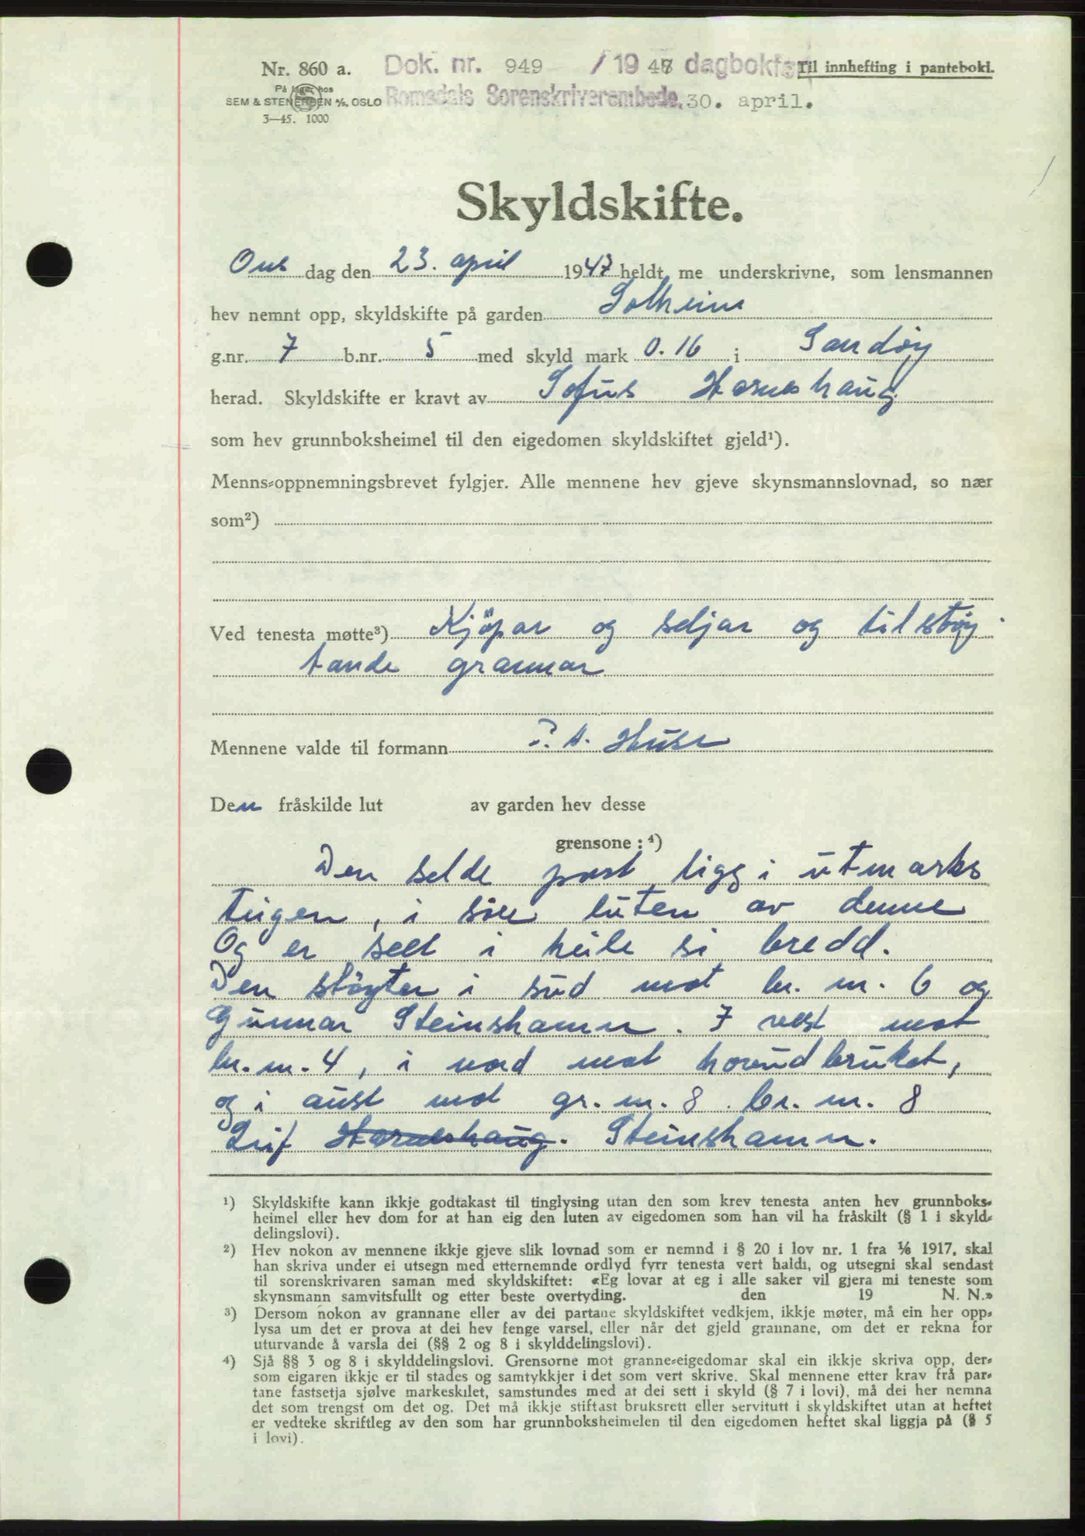 Nr. 860 a. Dok. nr. 949 / 1947 dagbokført Til innhefting i pantebok.
På lager hos
SEM & STENERSEN A/S, OSLO Romsdals Sorenskriverembede, 30. april.
3—45. 1000
Skyldskifte.
Ons dag den 23. april 1947 heldt me underskrivne, som lensmannen
hev nemnt opp, skyldskifte på garden Solheim
g.nr. 7 b.nr. 5 med skyld mark 0.16 i Sandøy
herad. Skyldskifte er kravt av Sofus Harneshaug
som hev grunnboksheimel til den eigedomen skyldskiftet gjeld¹).
Menns-oppnemningsbrevet fylgjer. Alle mennene hev gjeve skynsmannslovnad, so nær
som²)
Ved tenesta møtte³) Kjöpar og seljar og tilstöy
tande grannar
Mennene valde til formann P. A. Huse
Den fråskilde lut av garden hev desse
grensone : ⁴)
Den selde part ligg i utmarks
teigen, i söre luten av denne
Og er selt i heile si bredd.
Den stöyter i süd mot br. nr. 6 og
Gunnar Steinshamn. I vest mot
br. nr. 4, i nord mot hovudbruket,
og i aust mot gr. nr. 8 br. nr. 8
Leif Harneshaug. Steinshamn.
¹) Skyldskifte kann ikkje godtakast til tinglysing utan den som krev tenesta anten hev grunnboks-
heimel eller hev dom for at han eig den luten av eigedomen som han vil ha fråskilt (§ 1 i skyld-
delingslovi).
²) Hev nokon av mennene ikkje gjeve slik lovnad som er nemnd i § 20 i lov nr. 1 fra ⅙ 1917, skal
han skriva under ei utsegn med etternemnde ordlyd fyrr tenesta vert haldi, og utsegni skal sendast
til sorenskrivaren saman med skyldskiftet: «Eg lovar at eg i alle saker vil gjera mi teneste som
skynsmann samvitsfullt og etter beste overtyding. den 19 N. N.»
³) Dersom nokon av grannane eller av dei partane skyldskiftet vedkjem, ikkje møter, må ein her opp-
lysa um det er prova at dei hev fenge varsel, eller når det gjeld grannane, om det er rekna for
uturvande å varsla dei (§§ 2 og 8 i skylddelingslovi).
⁴) Sjå §§ 3 og 8 i skylddelingslovi. Grensorne mot granne-eigedomar skal ein ikkje skriva opp, der-
som eigaren ikkje er til stades og samtykkjer i det som vert skrive. Skal mennene etter krav frå par-
tane fastsetja sjølve markeskilet, samstundes med at dei sett i skyld (§ 7 i lovi), må dei her nemna
det som trengst om det og. Det må ikkje stiftast bruksrett eller servitutt i skyldskiftet utan at heftet
er vedteke skriftleg av den som har grunnboksheimelen til den eigedomen heftet skal liggja på (§ 5
i lovi).